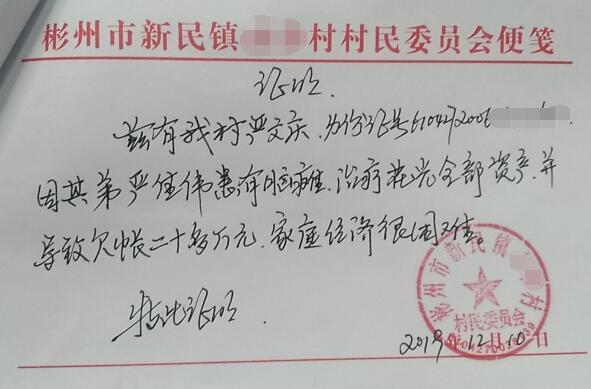 彬州市新民镇村村民委员会便笺
证明
兹有我村严文庆,身份证号6104272006
因其弟严佳伟患有脑瘫,治疗花光全部资产,并
导致欠帐二十多万元,家庭经济很困难。
特此证明
彬州市新民镇村
村民委员会
2019年12月10日